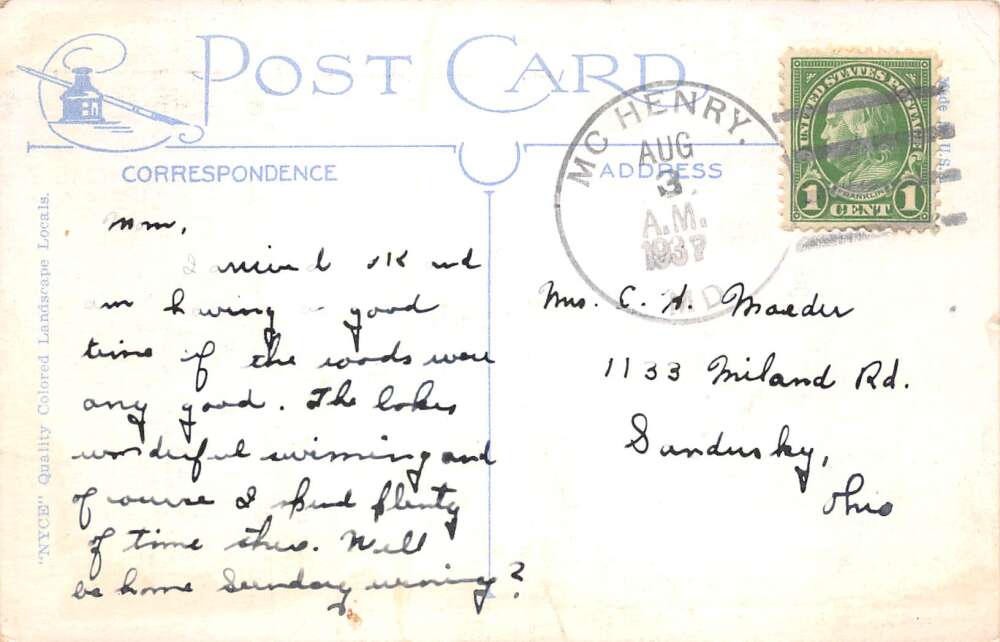 POST CARD
CORRESPONDENCE
ADDRESS
"NYCE" Quality Colored Landscape Locals.
Made U.S.
MC HENRY.
AUG
3
A.M.
1937
MD
UNITED STATES POSTAGE
FRANKLIN
1 CENT 1
Mom,
arrived OK and
am having a good
time if the woods were
any good. The lakes
wonderful swimming and
of course I spend plenty
of time there. Will
be home Sunday evening?
Mrs. C. A. Maeder
1133 Miland Rd.
Sandusky,
Ohio